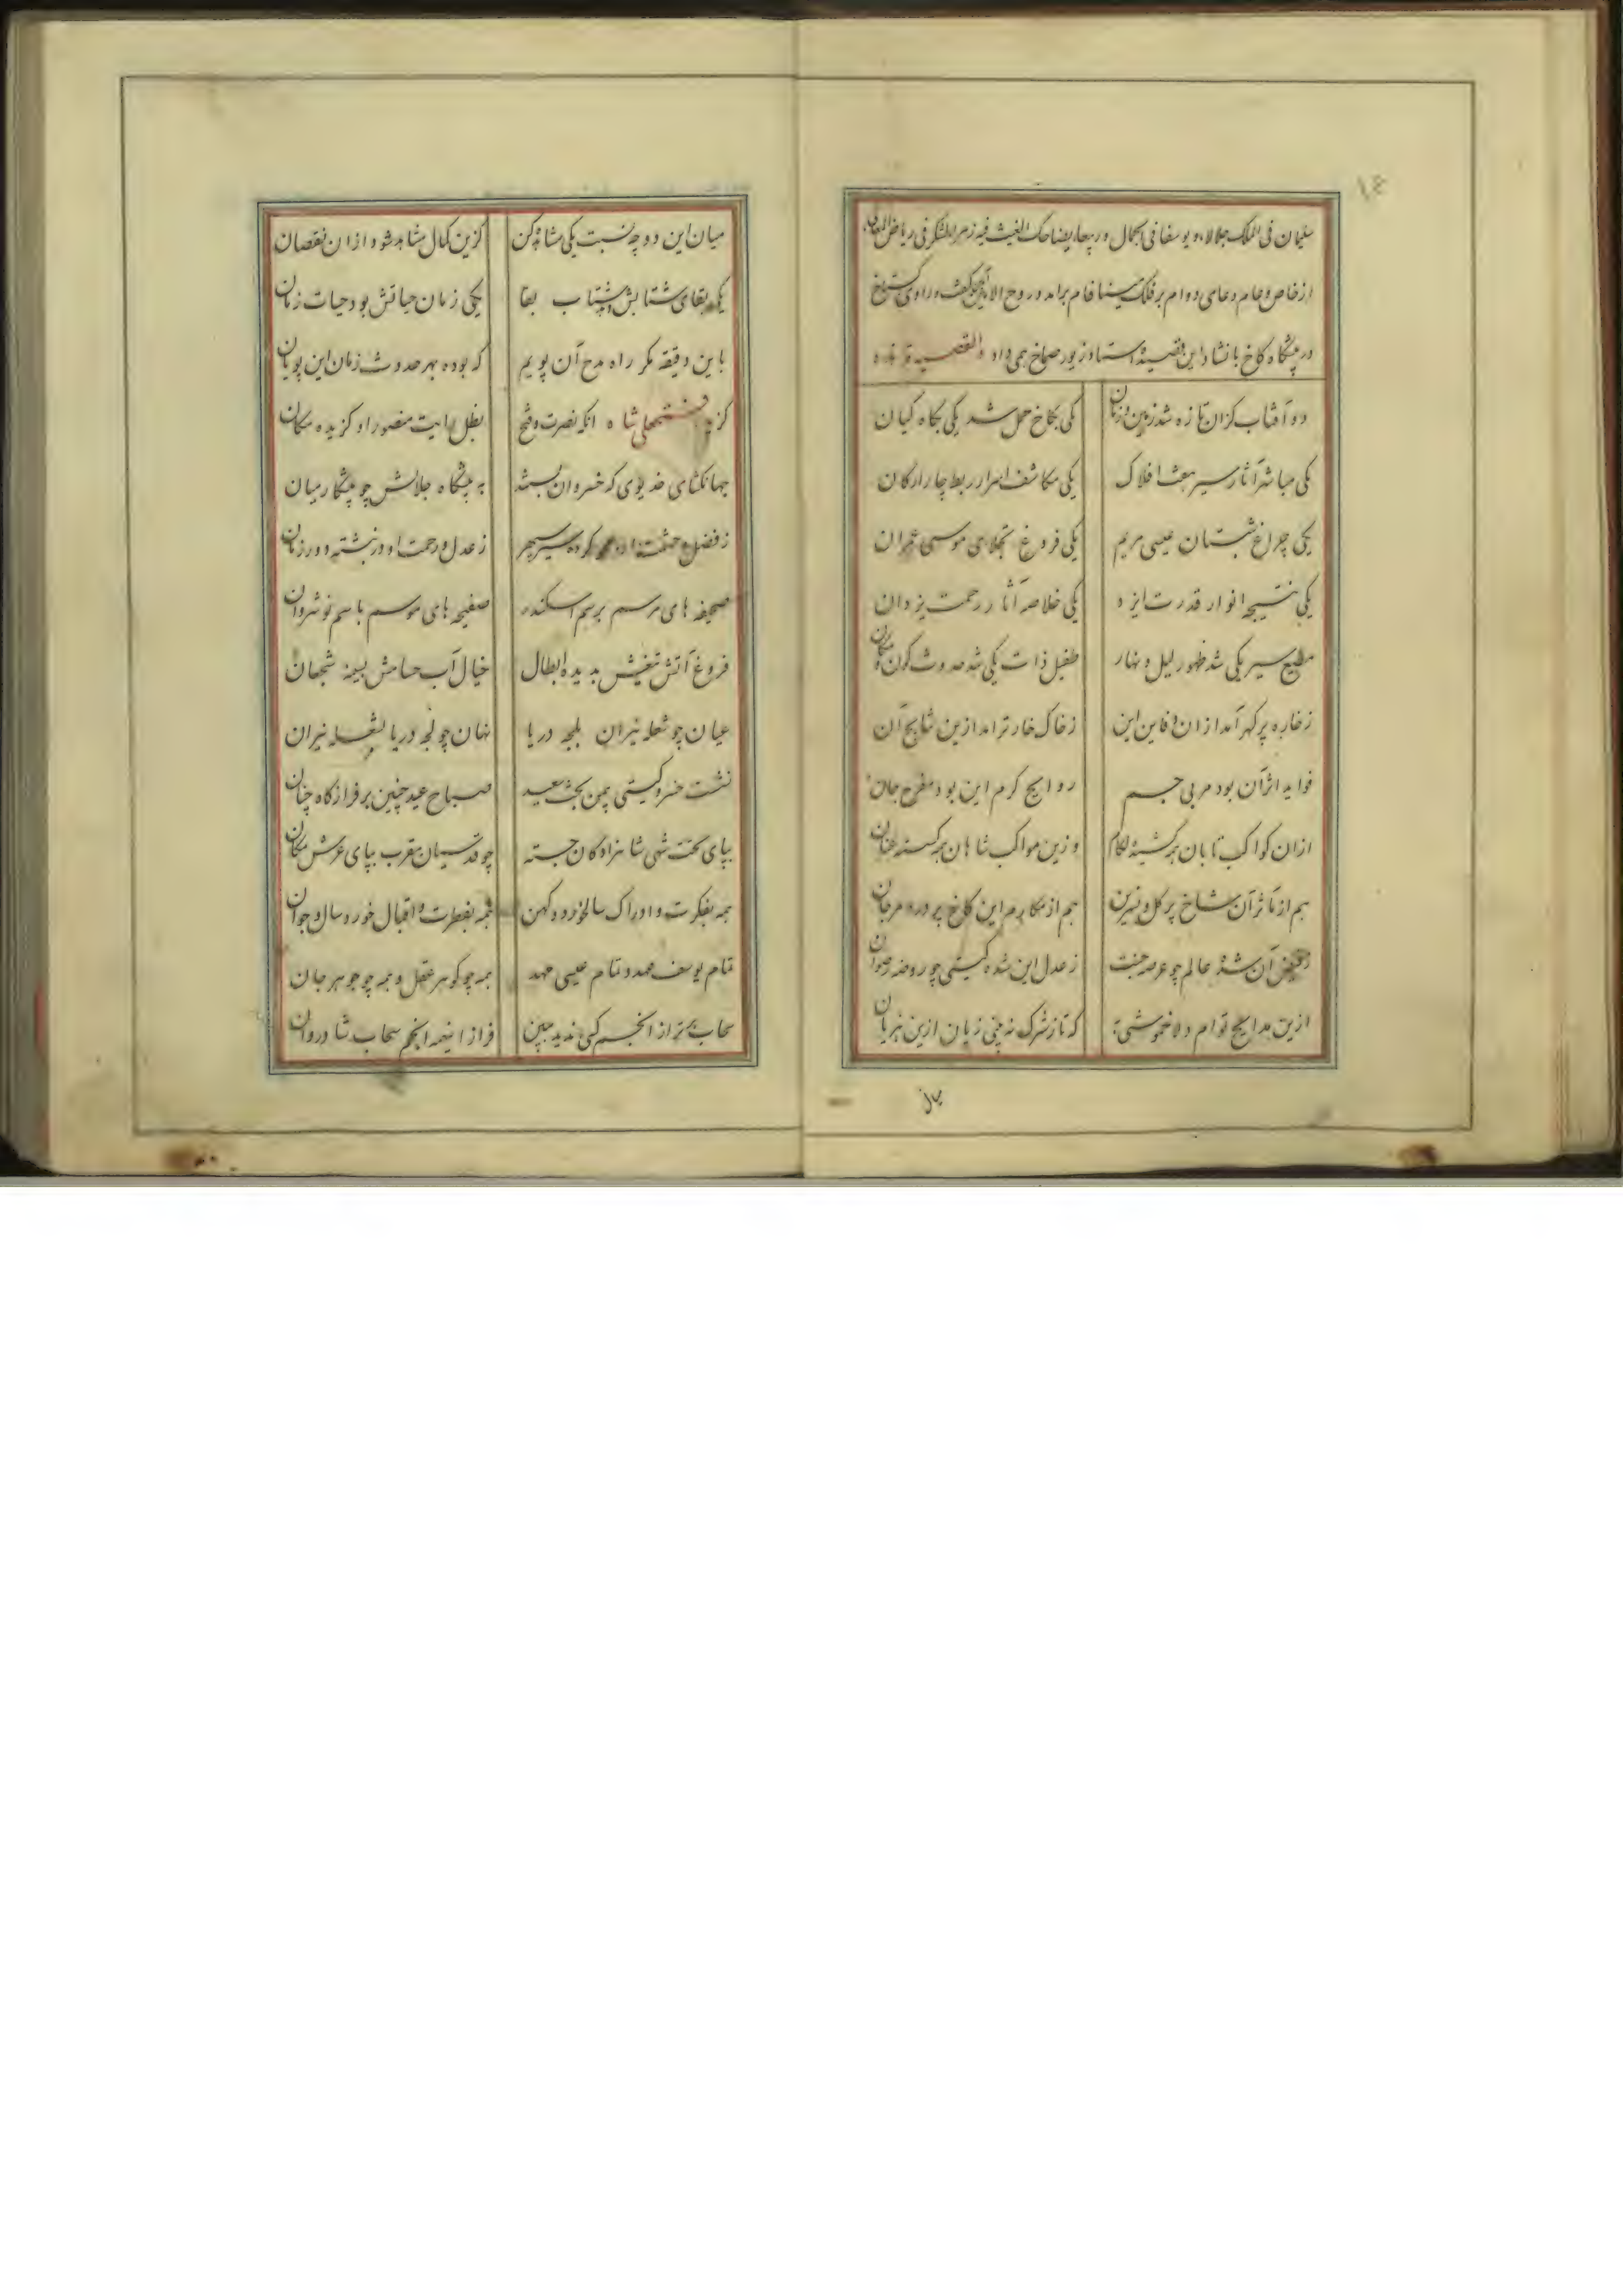 ۱٤
سلیمان فی الملک جلالا و یوسفا فی الجمال و ربیعا یضاحک الغیث فیه زهر الشکر فی ریاض المعانی
از خاص و عام دعای دوام بر فلک مینا فام برآمد و روح الامین گفت و راوی گستاخ
در پیشگاه کاخ بانشاد این قصیده استماع را زیور صماخ همی داد القصیده
دو آفتاب کزان تازه شد زمین و زمان یکی بکاخ حمل شد یکی بگاه کیان
یکی مباشر آثار سیر هفت افلاک یکی مکاشف اسرار ربط چار ارکان
یکی چراغ شبستان عیسی مریم یکی فروغ تجلای موسی عمران
یکی نتیجه انوار قدرت ایزد یکی خلاصه آثار رحمت یزدان
مطیع سیر یکی شد ظهور لیل و نهار طفیل ذات یکی شد حدوث کون و مکان
ز خاره پر گهر آمد از آن دفاین این ز خاک خار تر آمد ازین نتایج آن
فواید اثر آن بود مربی جسم روایح کرم این بود مفرح جان
ازان کواکب تابان همه کشیده لگام وزین مواکب شاهان همه گسسته عنان
هم از مآثر آن شاخ پر گل و نسرین هم از مکارم این کاخ پر در و مرجان
ز فیض آن شده عالم چو عرصه جنت ز عدل این شده گیتی چو روضه رضوان
ازین مدایح توام دلا خموشی به که تا ز شرک نه بینی زیان ازین هزیان
میان
میان این دو چه نسبت یکی مشاهده کن کزین کمال مشاهد شود ازان نقصان
یکی بقای شتابش شتاب بقا یکی زمان حیاتش بود حیات زمان
باین دقیقه مگر راه مدح آن پویم که بوده بهر حدوث زمان این پویان
گزیده فتحعلی شاه آنکه نصرت و فتح بظل رایت منصور او گزیده مکان
جهانگشای خدیوی که خسروان بستند به پیشگاه جلالش چو پیشکار میان
ز فضل و حشمت او کرده سپهر ز عدل و رحمت او در نبشته دور زمان
صحیفه های مرسم برسم اسکندر صفیحه های موسم باسم نوشروان
فروغ آتش تیغش بدیده ابطال خیال آب حسامش بسینه شجعان
عیان چو شعله نیران بلجه دریا نهان چو لجه دریا بشعله نیران
نشست خسرو گیتی بیمن بخت سعید صباح عید چنین بر فراز گاه چنان
بپای تخت شهی شاهزادگان جسته چو قدسیان مقرب بپای عرش مکان
همه بفکرت و ادراک سالخورد و کهن همه بفطرت و اقبال خوردسال و جوان
تمام یوسف عهد و تمام عیسی مهد همه چو گوهر عقل و همه چو جوهر جان
سحاب برتر از انجم کسی ندید ببین فراز اینهمه انجم سحاب شادروان